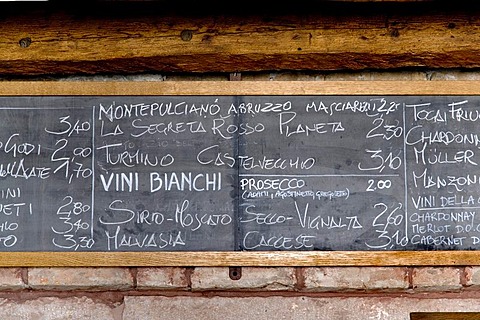 3,40
GODI 2,00
1,70
INI
ETI 2.80
3.40
3.30
MONTEPULCIANO ABRUZZO MASCIARELLI 2,20
LA SEGRETA ROSSO PLANETA 2.30
TURMINO CASTELVECCHIO 3,10
VINI BIANCHI
SIRIO-MOSCATO SECCO-VIGNALTA 2,60
MALVASIA CACCESE 3,10
PROSECCO 2.00
TOCAI FRIU
CHARDONN
MÜLLER
MANZONI
VINI DELLA
CHARDONNAY
MERLOT D.O.C
CABERNET D